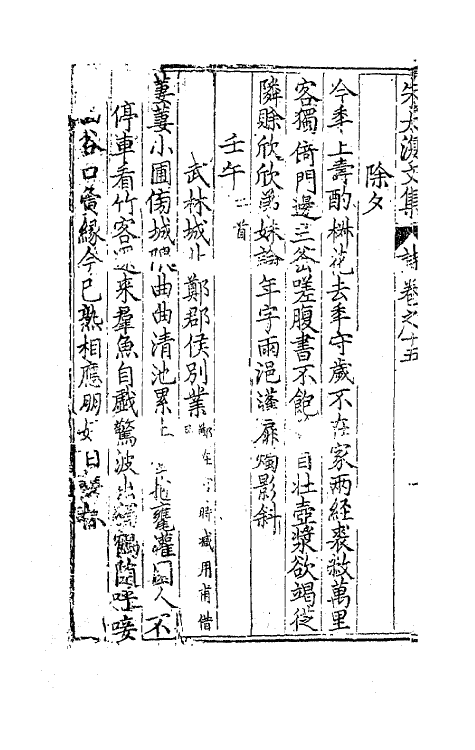 朱太復文集 詩卷之十五
除夕
今年上壽酌椒花去年守歲不在家兩經裘敝萬里
客獨倚門邊三釜嗟腹書不飽 目壯壺漿欲竭從
隣賒欣欣弟妹論年字兩浥蓬扉燭影斜
壬午 二首
武林城北鄭郡侯別業 時 用甫借
萋萋小圃傍城隈 曲曲清池累土 甕灌園人不
停車看竹客還來羣魚自戲驚波出 鶴隨呼唼
谷口夤緣今已熟相應朋 日